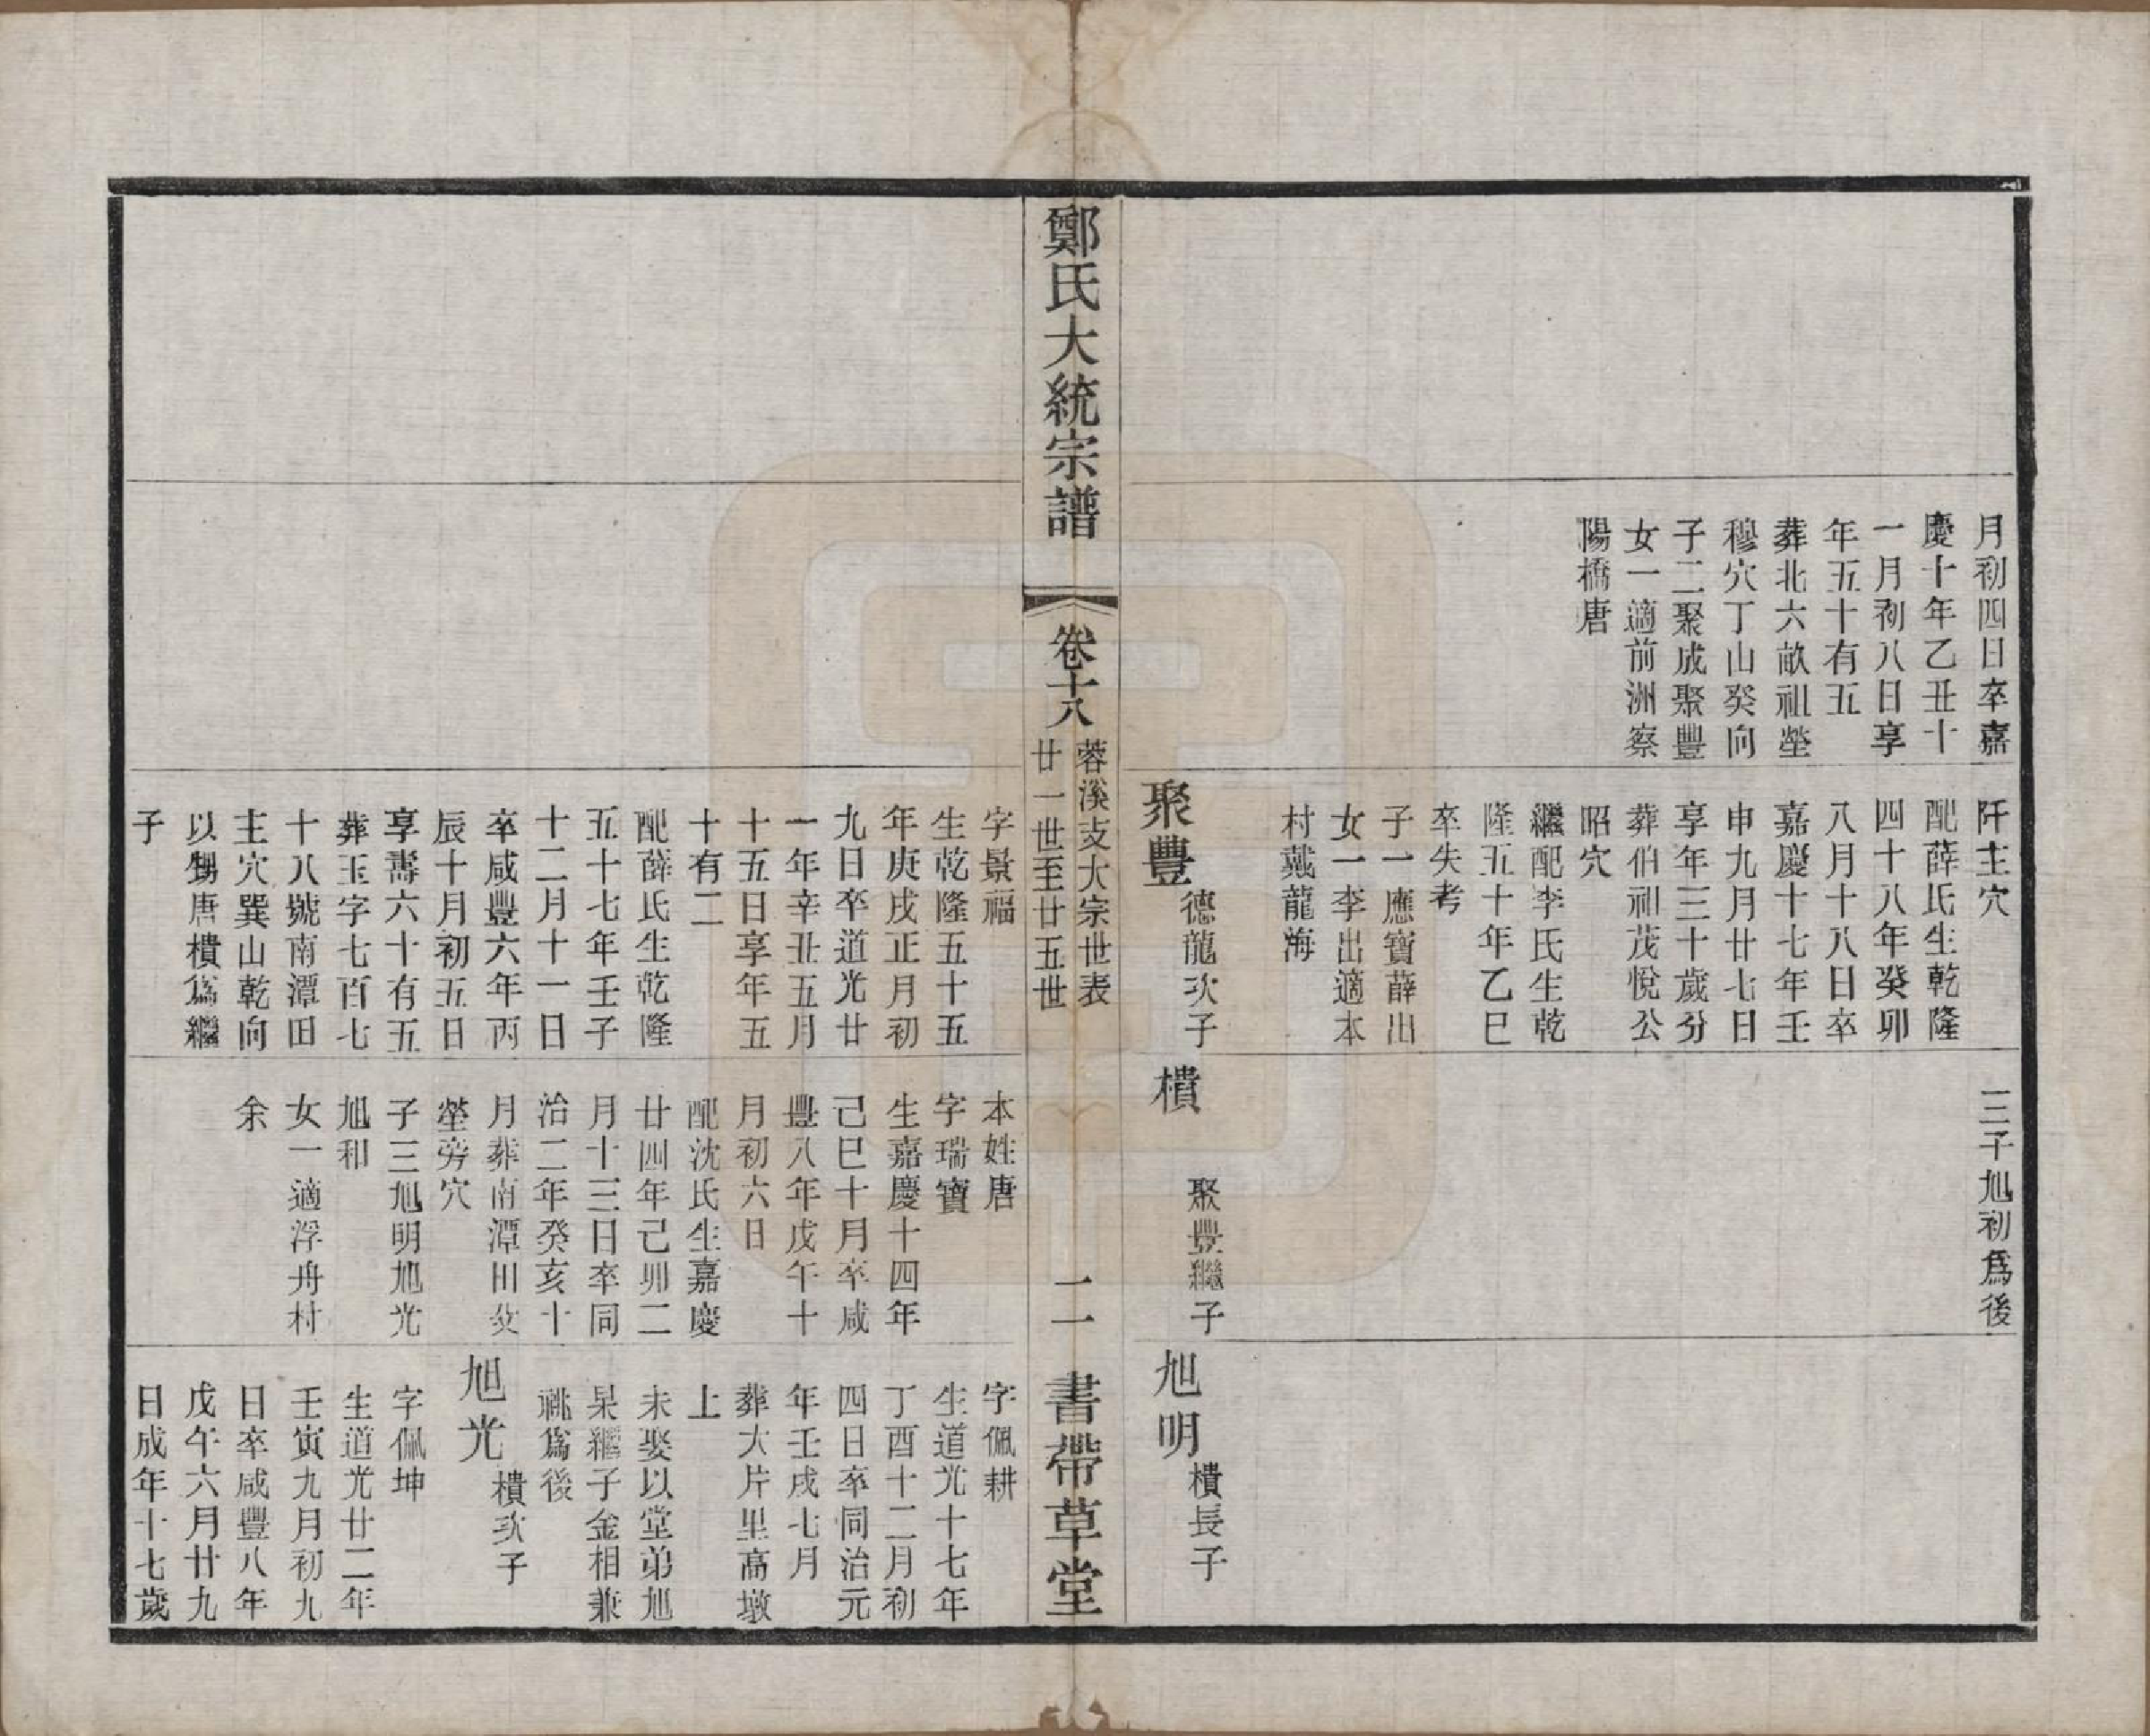 月初四日卒嘉
慶十年乙丑十
一月初八日享
年五十有五
葬北六畝祖塋
穆穴丁山癸向
子二聚成聚豐
女一適前洲察
陽橋唐
阡主穴
配薛氏生乾隆
四十八年癸卯
八月十八日卒
嘉慶十七年壬
申九月廿七日
享年三十歲分
葬伯祖茂悅公
昭穴
繼配李氏生乾
隆五十年乙巳
卒失考
子一應寶薛出
女一李出適本
村戴龍海
聚豐 德龍次子
三子旭初爲後
樻 聚豐繼子
旭明 樻長子
鄭氏大統宗譜
卷十八
蓉溪支大宗世表
廿一世至廿五世
二
書帶草堂
字景福
生乾隆五十五
年庚戌正月初
九日卒道光廿
一年辛丑五月
十五日享年五
十有二
配薛氏生乾隆
五十七年壬子
十二月十一日
卒咸豐六年丙
辰十月初五日
享壽六十有五
葬玉字七百七
十八號南潭田
主穴巽山乾向
以甥唐樻爲繼
子
本姓唐
字瑞寶
生嘉慶十四年
己巳十月卒咸
豐八年戊午十
月初六日
配沈氏生嘉慶
廿四年己卯二
月十三日卒同
治二年癸亥十
月葬南潭田父
塋旁穴
子三旭明旭光
旭和
女一適浮舟村
余
字佩耕
生道光十七年
丁酉十二月初
四日卒同治元
年壬戌七月
葬大片里高墩
上
未娶以堂弟旭
杲繼子金相兼
祧爲後
旭光 樻次子
字佩坤
生道光廿二年
壬寅九月初九
日卒咸豐八年
戊午六月廿九
日成年十七歲